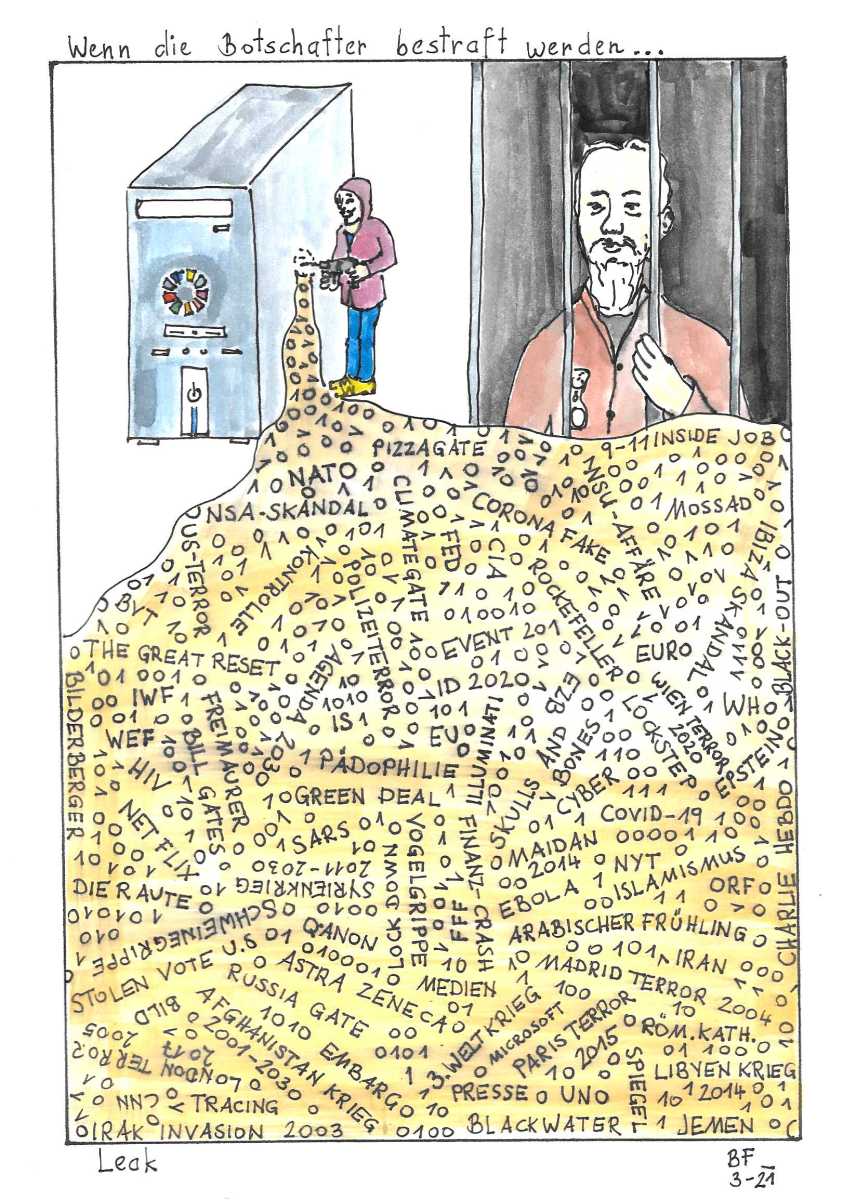 Wenn die Botschafter bestraft werden...
PIZZAGATE
9-11 INSIDE JOB
NATO
NSA-SKANDAL
CLIMATEGATE
CORONA FAKE
NSU-AFFÄRE
MOSSAD
US-TERROR
KONTROLLE
POLIZEITERROR
FED
CIA
ROCKEFELLER
IBIZA SKANDAL
BLACK-OUT
BVT
THE GREAT RESET
AGENDA 2030
EVENT 201
EURO
ID 2020
BILDERBERGER
IWF
FREIMAURER
IS
EU
ILLUMINATI
EZB
SKULLS AND BONES
LOCKSTEP
WIEN TERROR 2020
WHO
EPSTEIN
WEF
BILL GATES
PÄDOPHILIE
HIV
GREEN DEAL
CYBER
COVID-19
NETFLIX
SARS
VOGELGRIPPE
LOCK DOWN
FINANZ-CRASH
MAIDAN 2014
NYT
CHARLIE HEBDO
SYRIENKRIEG 2011-2030
DIE RAUTE
FFF
EBOLA
ISLAMISMUS
ORF
SCHWEINEGRIPPE
QANON
ARABISCHER FRÜHLING
STOLEN VOTE U.S
ASTRA ZENECA
MEDIEN
IRAN
MADRID TERROR 2004
RUSSIA GATE
BILD
AFGHANISTAN KRIEG 2001-2030
EMBARGO
3. WELTKRIEG
MICROSOFT
PARIS TERROR 2015
RÖM. KATH.
LONDON TERROR 2005 2017
SPIEGEL
LIBYEN KRIEG 2014
CNN
TRACING
PRESSE
UNO
IRAK INVASION 2003
BLACKWATER
JEMEN
Leak
BF
3-21